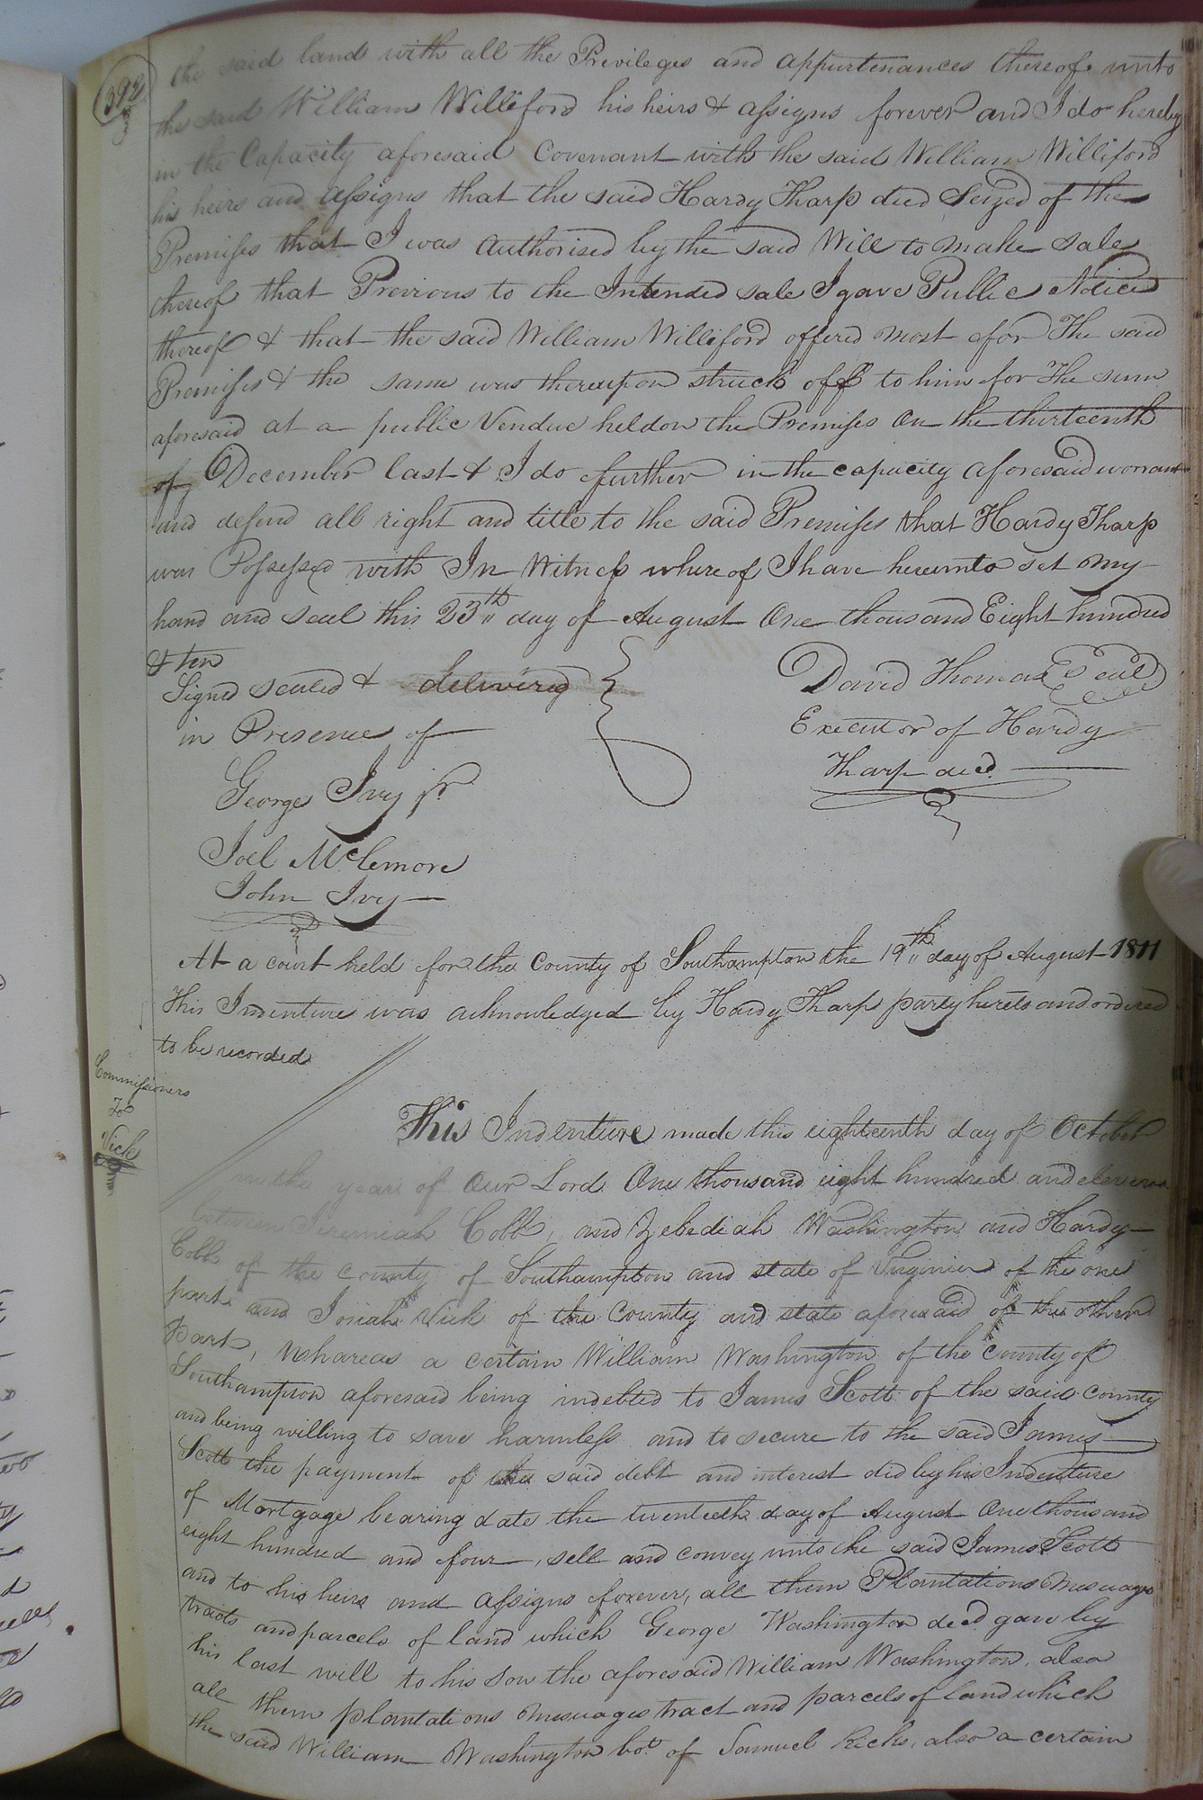 392
the said land with all the Privileges and appurtenances thereof unto
the said William Williford his heirs & assigns forever and I do hereby
in the Capacity aforesaid Covenant with the said William Williford
his heirs and assigns that the said Hardy Tharp died Seized of the
Premises that I was authorised by the said Will to make sale
thereof that Previous to the Intended sale I gave Public Noticed
thereof & that the said William Williford offered most for The said
Premises & the same was thereupon struck off to him for The sum
aforesaid at a public Vendue held on the Premises On the thirteenth
of December last & I do further in the capacity aforesaid worrant
and defend all right and title to the said Premises that Hardy Tharp
was Possessed with In Witness whereof I have hereunto set my
hand and seal this 23th day of August One thousand Eight hundred
& ten
Signed sealed & delivered
in Presence of
David Thomas Seal
Executor of Hardy
Tharp decd
George Ivy jr
Joel McLemore
John Ivy
At a court held for the County of Southampton the 19th day of August 1811
This Indenture was acknowledged by Hardy Tharp party hereto and ordered
to be recorded
Commissioners
To
Vick
This Indenture made this eighteenth day of October
in the year of Our Lord One thousand eight hundred and eleven
between Jeremiah Cobb, and Zebediah Washington and Hardy
Cobb of the county of Southampton and state of Virginia of the one
part and Josiah Vick of the County and state aforesaid of the other
Part, whareas a certain William Washington of the County of
Southampton aforesaid being indebted to James Scott of the said county
and being willing to save harmless and to secure to the said James
Scott the payment of the said debt and interest did by his Indenture
of Mortgage bearing date the twentieth day of August One thousand
eight hundred and four, sell and convey unto the said James Scott
and to his heirs and assigns forever, all them Plantations Mesuage
tracts and parcels of land which George Washington decd gave by
his last will to his Son the aforesaid William Washington, also
all them plantations Mesuages tract and parcels of land which
the said William Washington bot of Samuel Ricks, also a certain